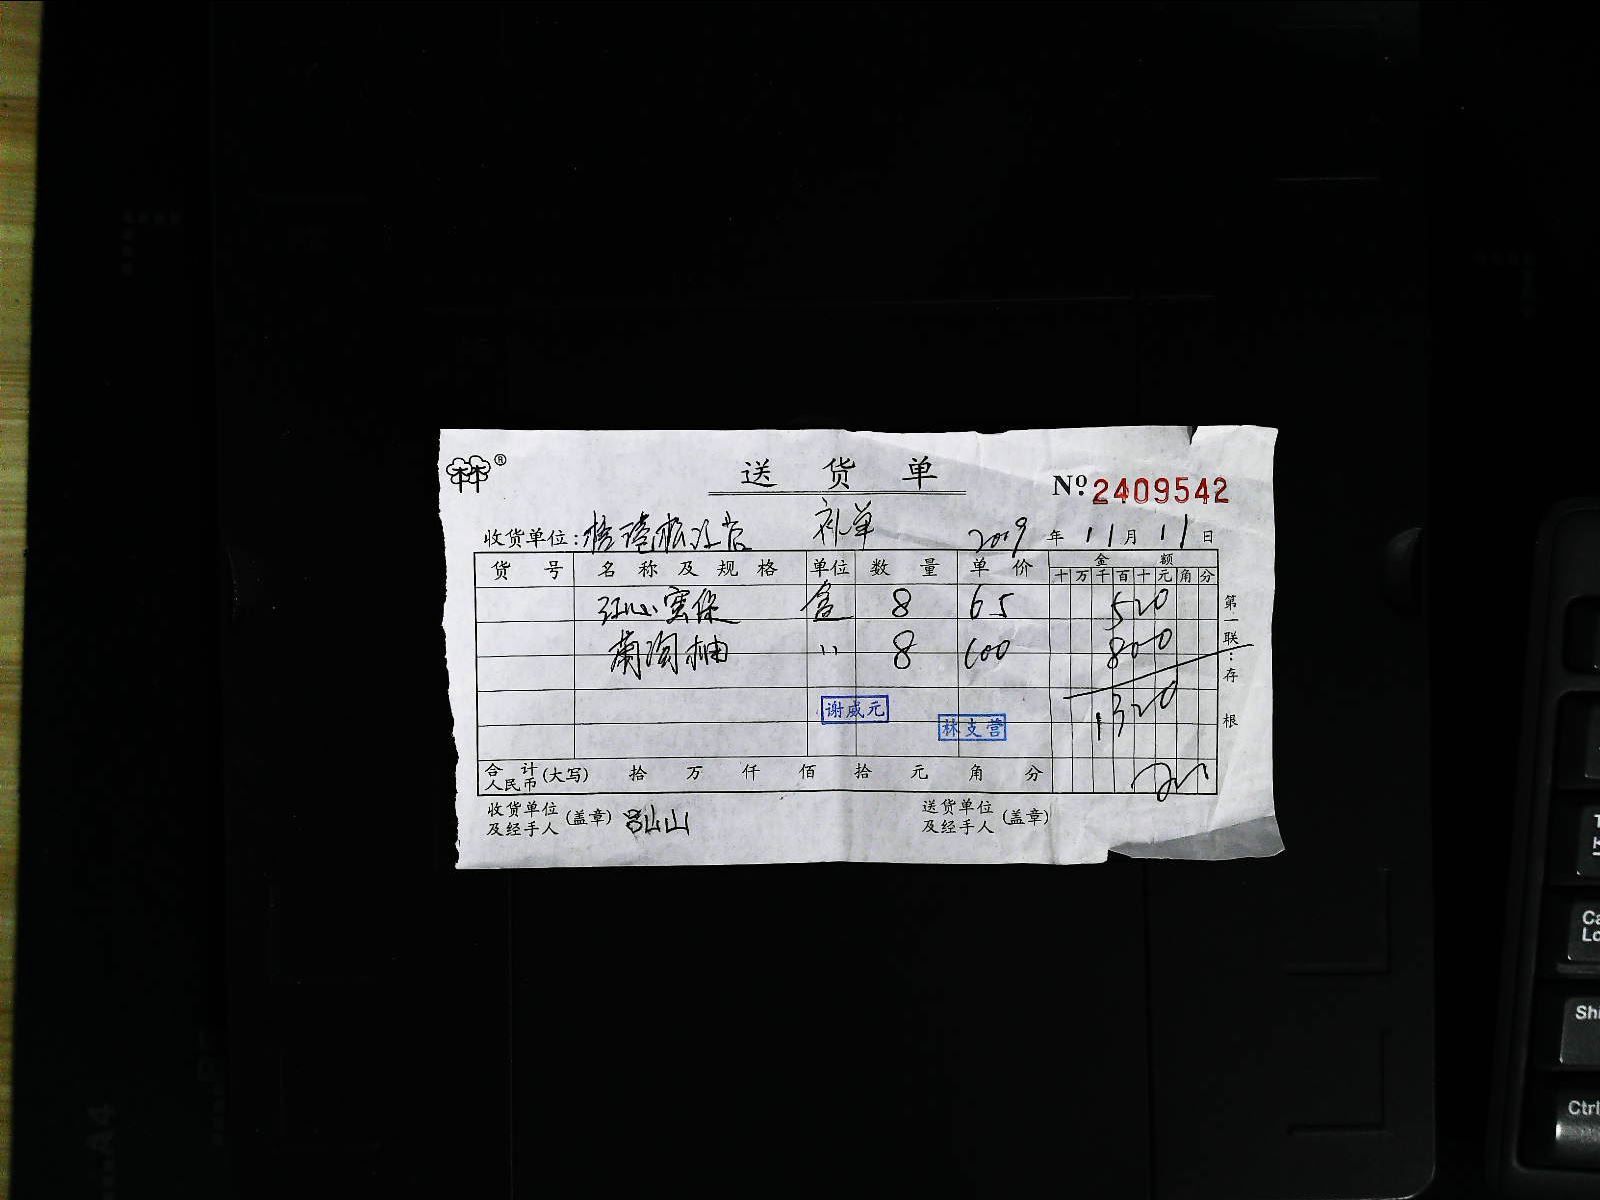 林®
送货单
№ 2409542
补单
收货单位: 2019年11月11日
货号 名称及规格 单位 数量 单价 金额
十万千百十元角分
红心蜜保 盒 8 65 520
葡淘柚 " 8 100 800
1320
谢威元
林支营
合计人民币(大写) 拾 万 仟 佰 拾 元 角 分
收货单位及经手人(盖章) 吕山山
送货单位及经手人(盖章)
第一联:存根
A4
Shi
Ctrl